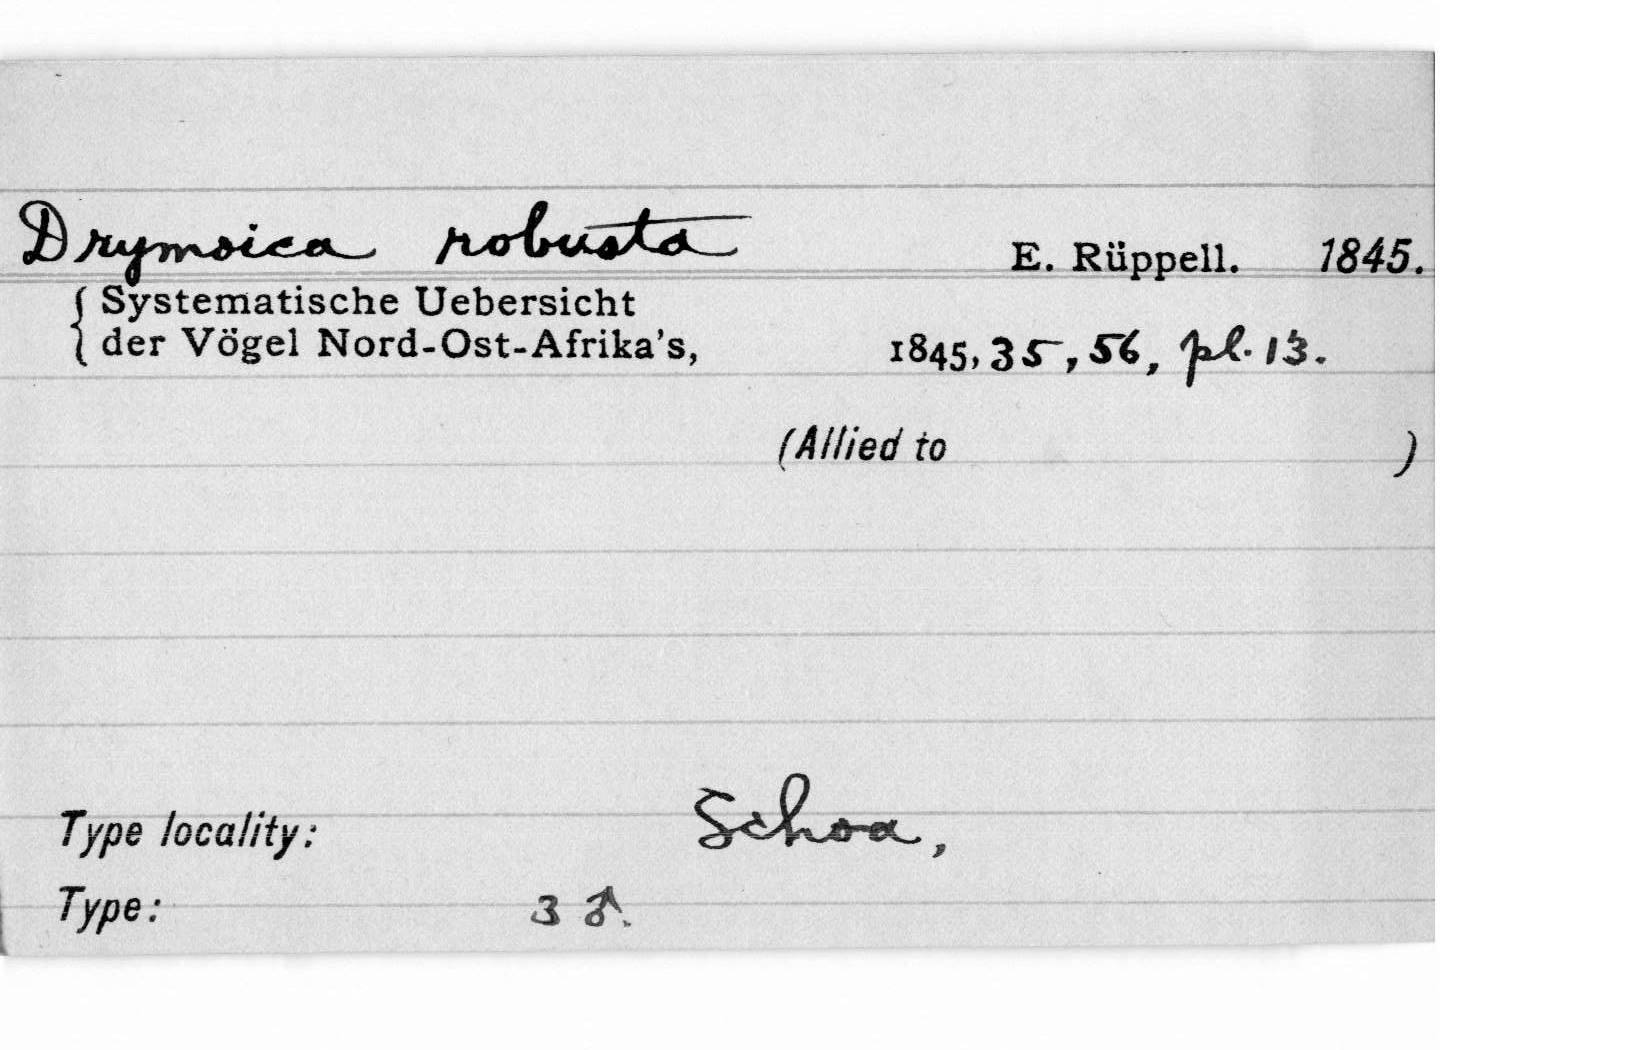 Drymoica robusta E. Rüppell. 1845.
{ Systematische Uebersicht
der Vögel Nord-Ost-Afrika's, 1845, 35, 56, pl. 13.
(Allied to )
Type locality: Schoa,
Type: 3 ♂.